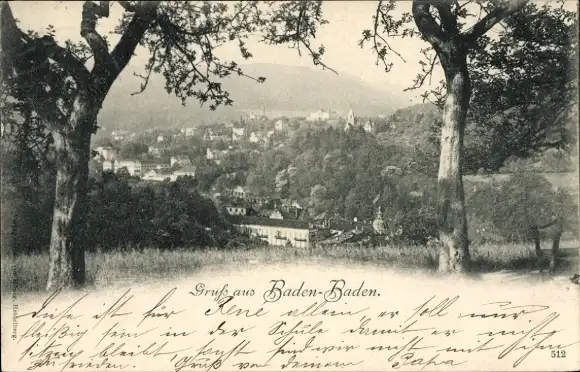 Gruß aus Baden-Baden.
Diese ist für Rene allein er soll nur
fleißig sein in der Schule damit er nicht
sitzen bleibt, sonst sind wir nicht mit ihm
zufrieden. Gruß von deinem Papa
512